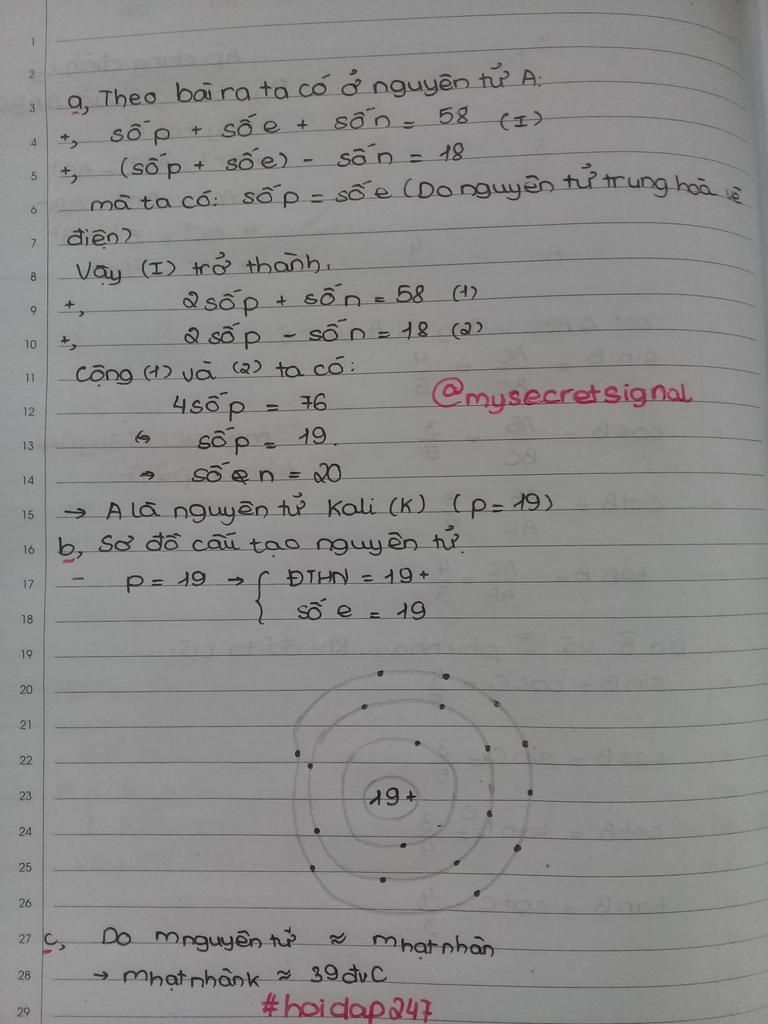 1
2
3 a, Theo bài ra ta có ở nguyên tử A:
4 +, số p + số e + số n = 58 (I)
5 +, (số p + số e) - số n = 18
6 mà ta có: số p = số e (Do nguyên tử trung hoà về
7 điện)
8 Vậy (I) trở thành:
9 +, 2 số p + số n = 58 (1)
10 +, 2 số p - số n = 18 (2)
11 Cộng (1) và (2) ta có:
12 4 số p = 76
@mysecretsignal
13 ⇔ số p = 19.
14 ⇒ số n = 20
15 → A là nguyên tử Kali (K) (p = 19)
16 b, Sơ đồ cấu tạo nguyên tử.
17 - p = 19 → { ĐTHN = 19+
18 số e = 19
19
20
21
22
23 19+
24
25
26
27 c, Do m nguyên tử ≈ m hạt nhân
28 → m hạt nhân K ≈ 39 đvC
29 #hoidap247